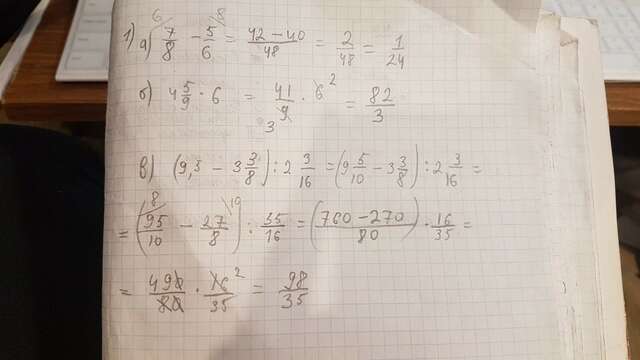 1) а) 7/8 (6) - 5/6 (8) = (42 - 40)/48 = 2/48 = 1/24
б) 4 5/9 · 6 = 41/9 (3) · 6 (2) = 82/3
в) (9,5 - 3 3/8) : 2 3/16 = (9 5/10 - 3 3/8) : 2 3/16 =
= (95/10 (8) - 27/8 (10)) : 35/16 = ((760 - 270)/80) · 16/35 =
= 490/80 · 16/35 (2) = 98/35